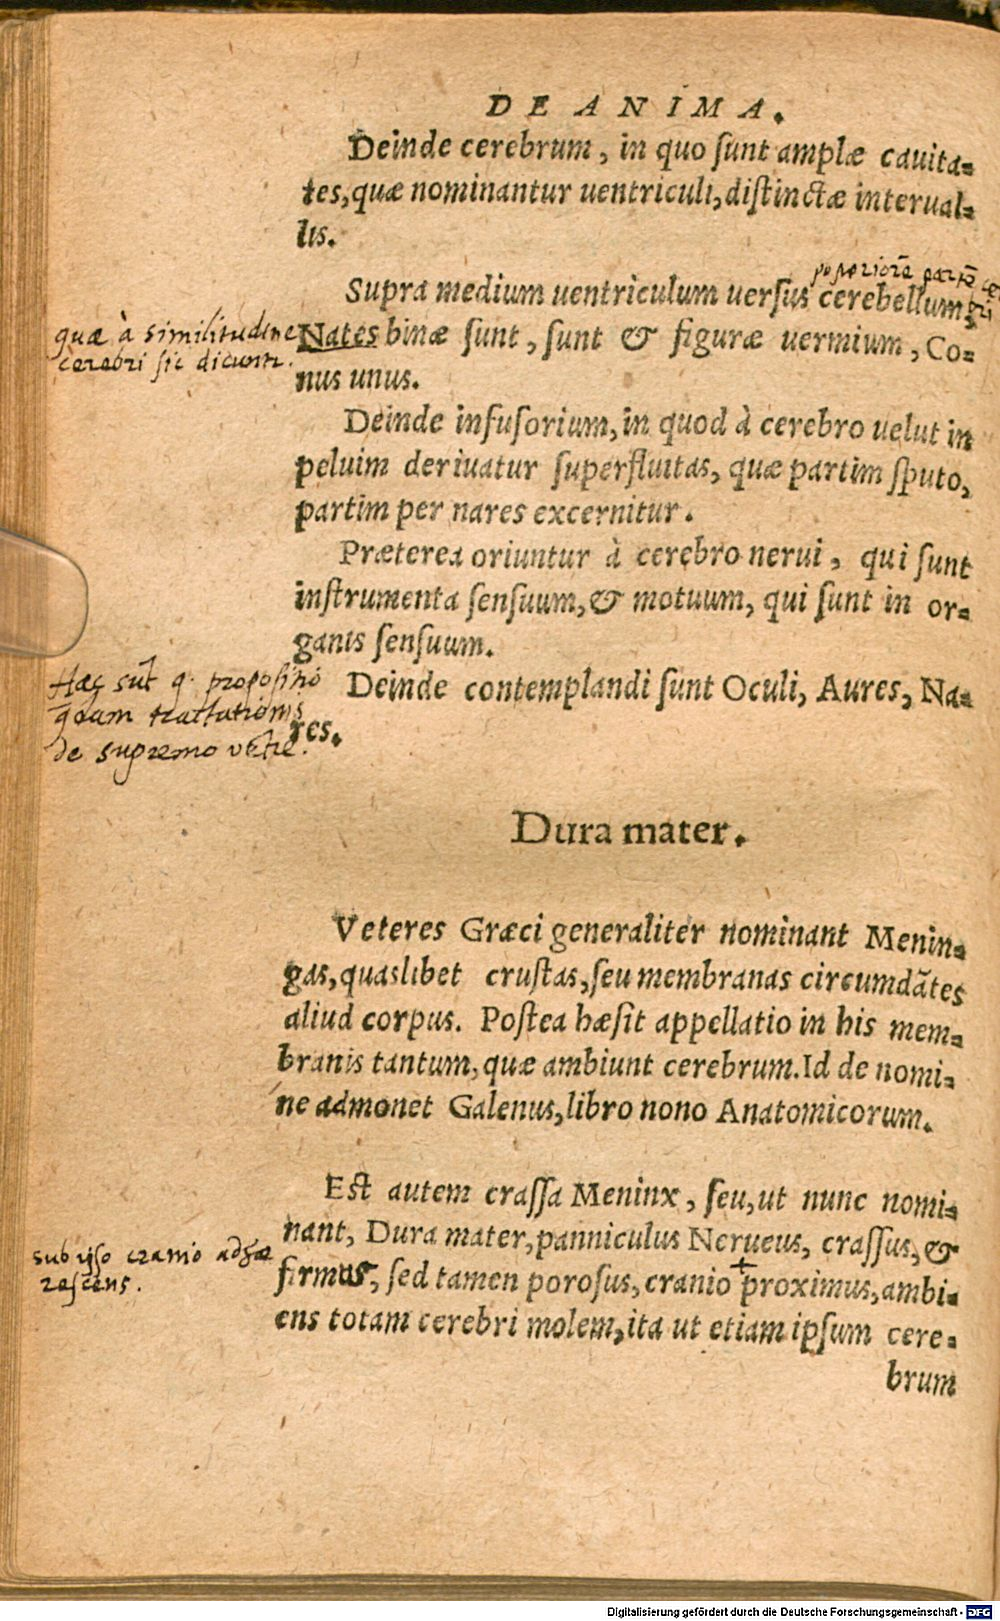 DE ANIMA.
Deinde cerebrum, in quo ſunt amplæ cauita-
tes, quæ nominantur uentriculi, diſtinctæ interual-
lis.
poſteriorē partē
Supra medium uentriculum uerſus cerebellum,
quæ à similitudine
cerebri ſic dicuntr.
Nates binæ ſunt, ſunt & figuræ uermium, Co-
nus unus.
Deinde infuſorium, in quod à cerebro uelut in
peluim deriuatur ſuperfluitas, quæ partim ſputo,
partim per nares excernitur.
Præterea oriuntur à cerebro nerui, qui ſunt
inſtrumenta ſenſuum, & motuum, qui ſunt in or-
ganis ſenſuum.
Hæc sūt q. propositio
quam tractationis
de supremo vētre.
Deinde contemplandi ſunt Oculi, Aures, Na-
res.
Dura mater.
Veteres Græci generaliter nominant Menin-
gas, quaslibet cruſtas, ſeu membranas circumdātes
aliud corpus. Poſtea hæſit appellatio in his mem-
branis tantum, quæ ambiunt cerebrum. Id de nomi-
ne admonet Galenus, libro nono Anatomicorum.
Eſt autem craſſa Meninx, ſeu, ut nunc nomi-
nant, Dura mater, panniculus Nerueus, craſſus, &
sub ipso cranio adhæ
rescens.
firmus, ſed tamen poroſus, cranio + proximus, ambi-
ens totam cerebri molem, ita ut etiam ipſum cere-
brum
Digitalisierung gefördert durch die Deutsche Forschungsgemeinschaft - DFG